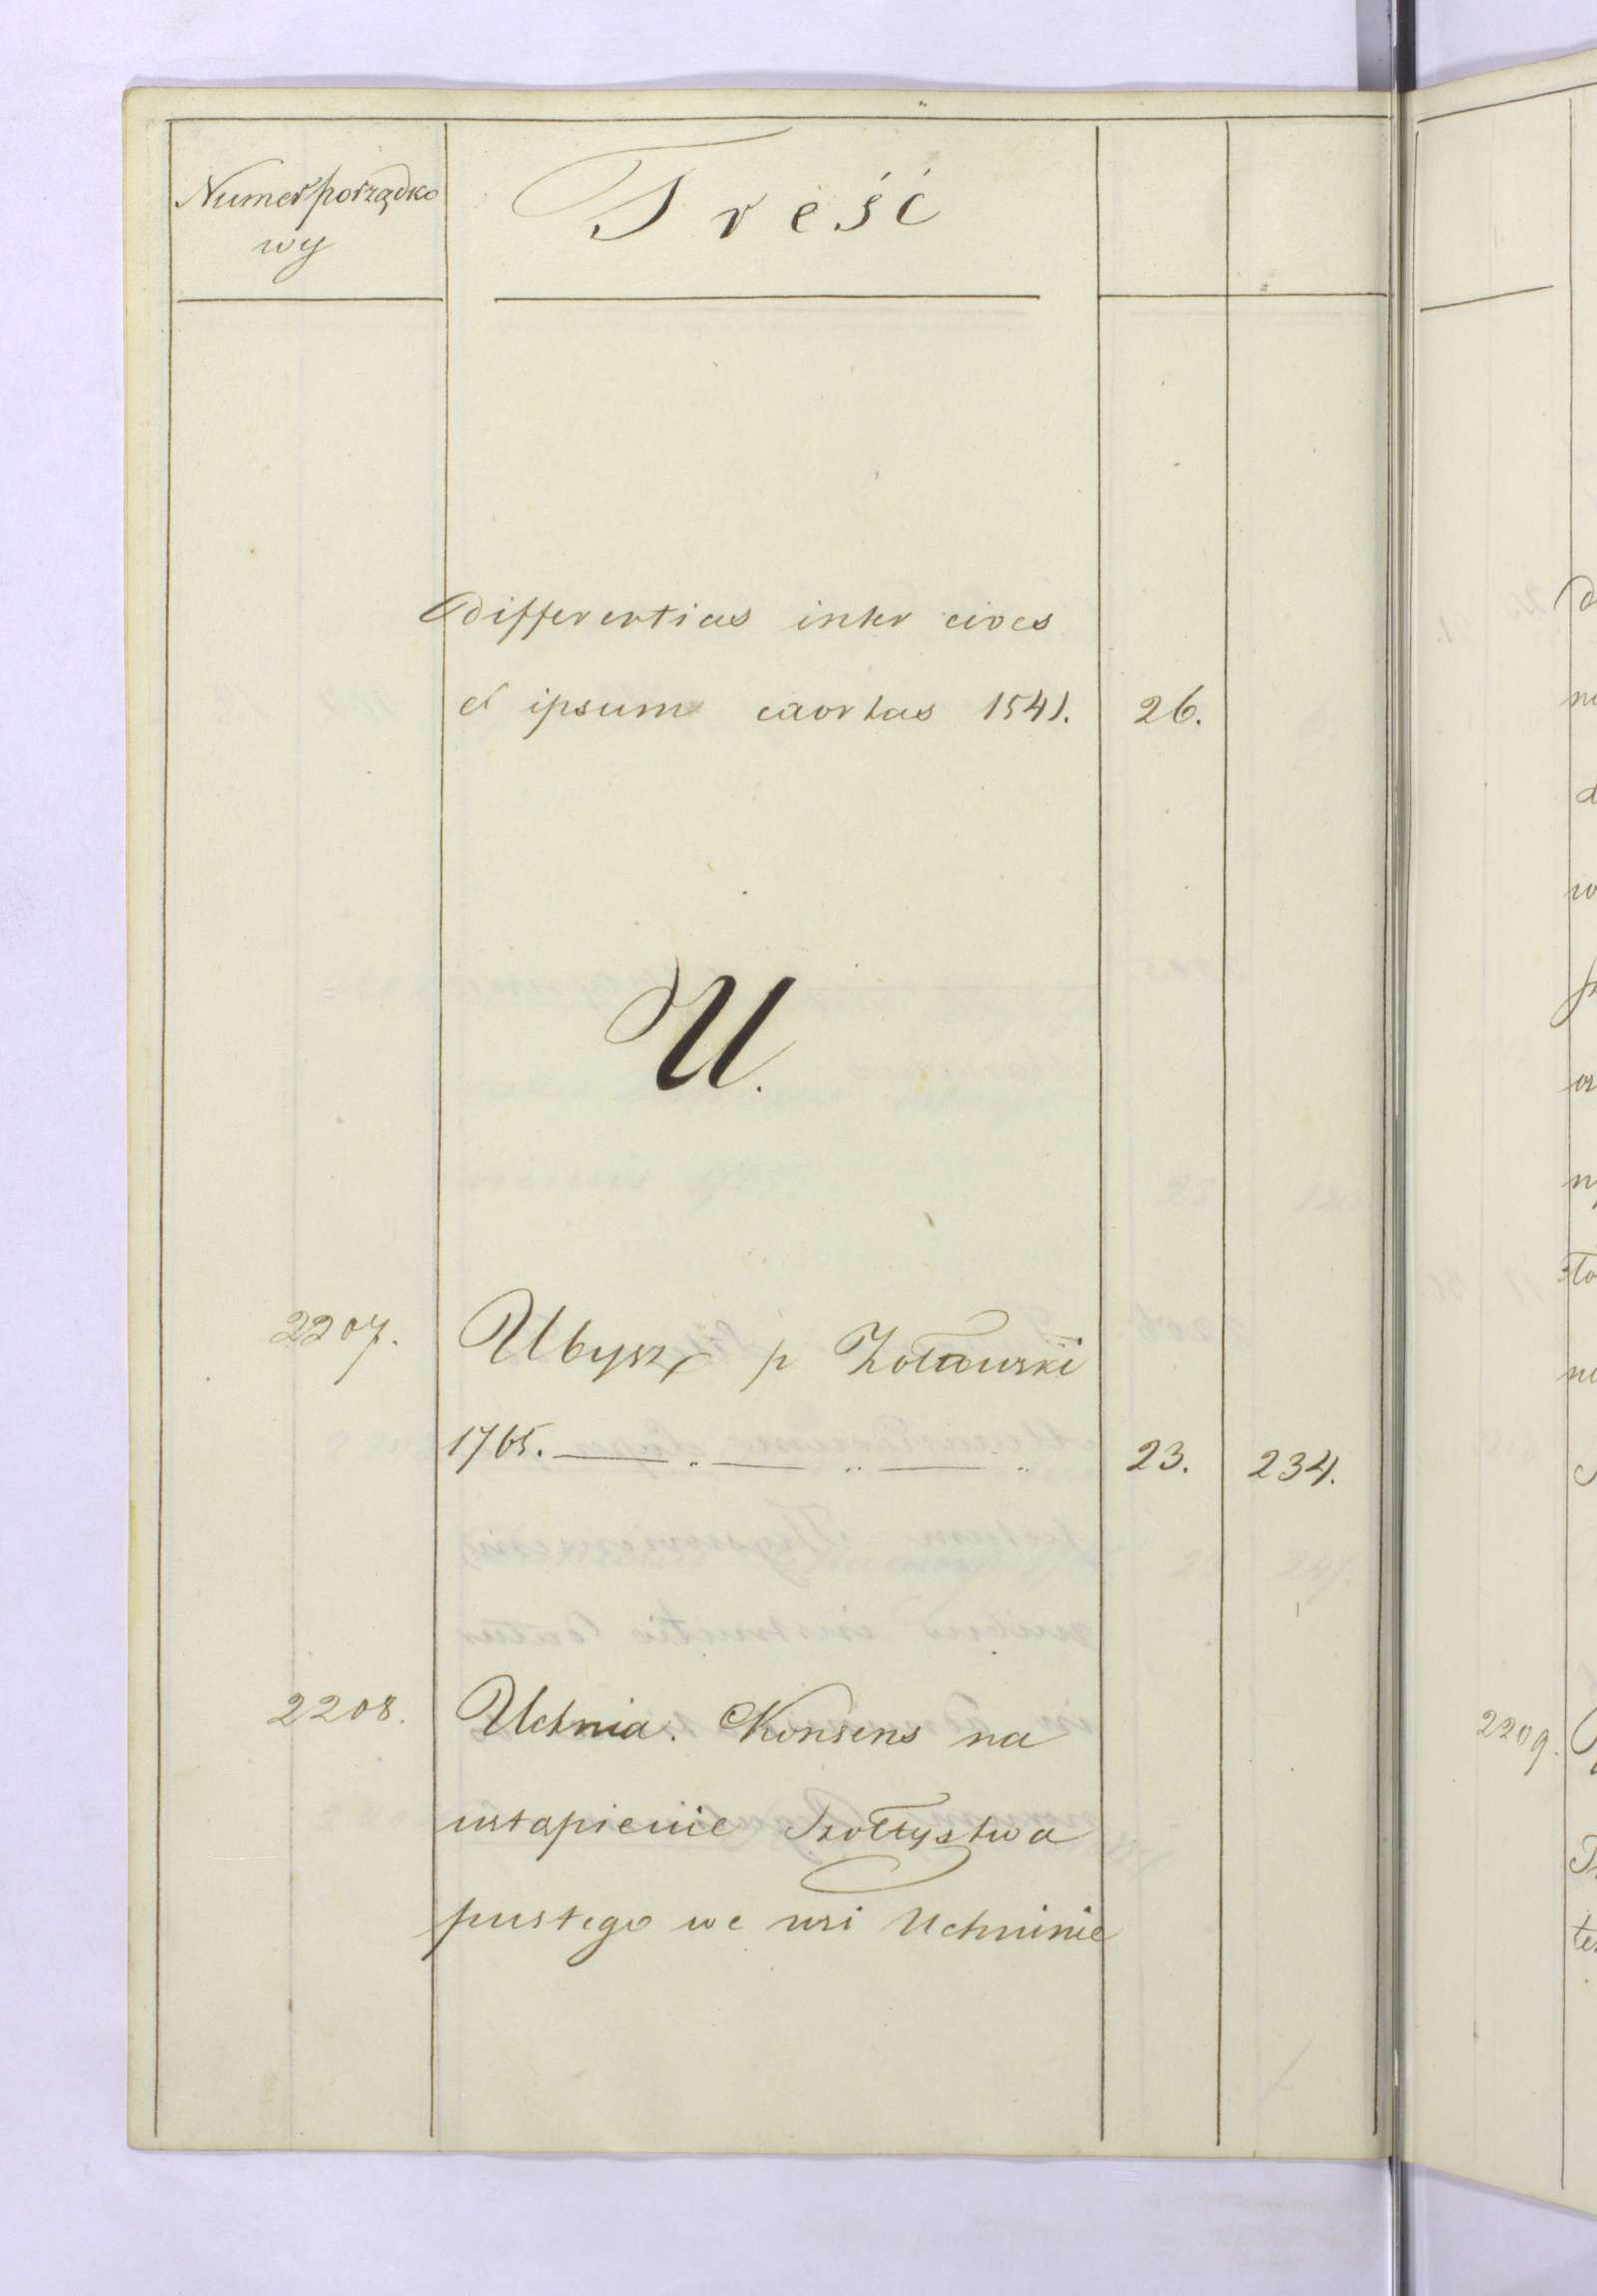 Numer porządko
wy
Treść
differentias inter cives
et ipsum caortas 1541. 26.
U.
2207. Ubysz p Zołtowski
1765. — " — " — " 23. 234.
2208. Uchnia. Konsens na
ustapienie Szołtystwa
pustego we wsi Uchninie
2209.